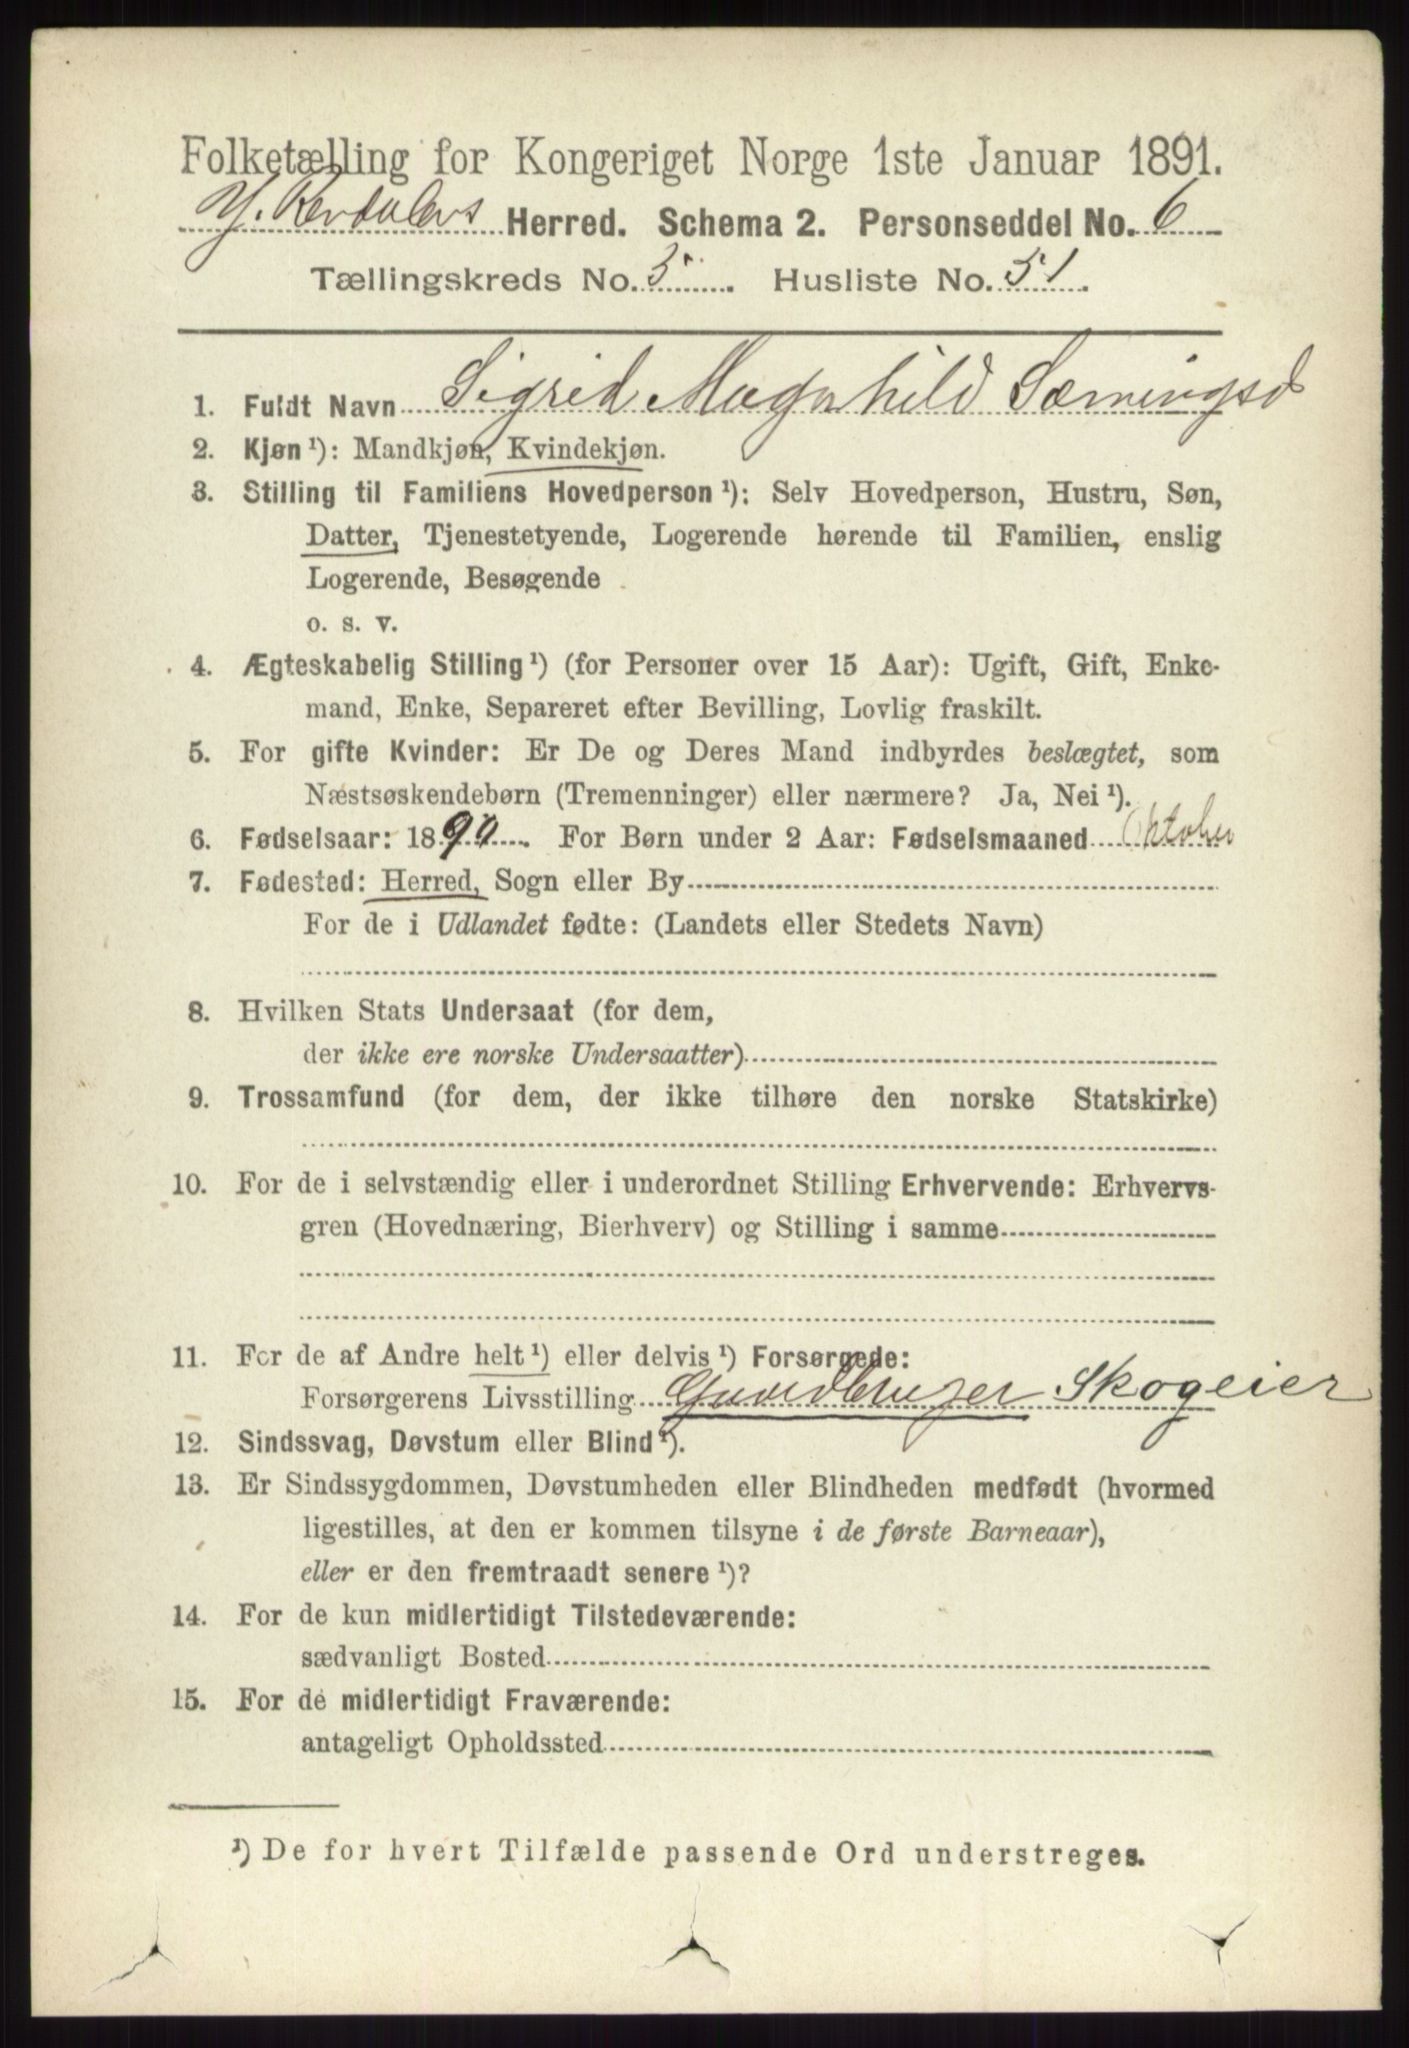 Folketælling for Kongeriget Norge 1ste Januar 1891.
Y. Rendalens Herred. Schema 2. Personseddel No. 6
Tællingskreds No. 5. Husliste No. 51.
1. Fuldt Navn Sigrid Magnhild Sæmingsd
2. Kjøn ¹): Mandkjøn, Kvindekjøn.
3. Stilling til Familiens Hovedperson ¹): Selv Hovedperson, Hustru, Søn,
Datter, Tjenestetyende, Logerende hørende til Familien, enslig
Logerende, Besøgende
o. s. v.
4. Ægteskabelig Stilling ¹) (for Personer over 15 Aar): Ugift, Gift, Enke-
mand, Enke, Separeret efter Bevilling, Lovlig fraskilt.
5. For gifte Kvinder: Er De og Deres Mand indbyrdes beslægtet, som
Næstsøskendebørn (Tremenninger) eller nærmere? Ja, Nei ¹).
6. Fødselsaar: 1890. For Børn under 2 Aar: Fødselsmaaned Oktober
7. Fødested: Herred, Sogn eller By
For de i Udlandet fødte: (Landets eller Stedets Navn)
8. Hvilken Stats Undersaat (for dem,
der ikke ere norske Undersaatter)
9. Trossamfund (for dem, der ikke tilhøre den norske Statskirke)
10. For de i selvstændig eller i underordnet Stilling Erhvervende: Erhvervs-
gren (Hovednæring, Bierhverv) og Stilling i samme
11. For de af Andre helt ¹) eller delvis ¹) Forsørgede:
Forsørgerens Livsstilling Gaardbruger Skogeier
12. Sindssvag, Døvstum eller Blind ¹).
13. Er Sindssygdommen, Døvstumheden eller Blindheden medfødt (hvormed
ligestilles, at den er kommen tilsyne i de første Barneaar),
eller er den fremtraadt senere ¹)?
14. For de kun midlertidigt Tilstedeværende:
sædvanligt Bosted
15. For de midlertidigt Fraværende:
antageligt Opholdssted
¹) De for hvert Tilfælde passende Ord understreges.